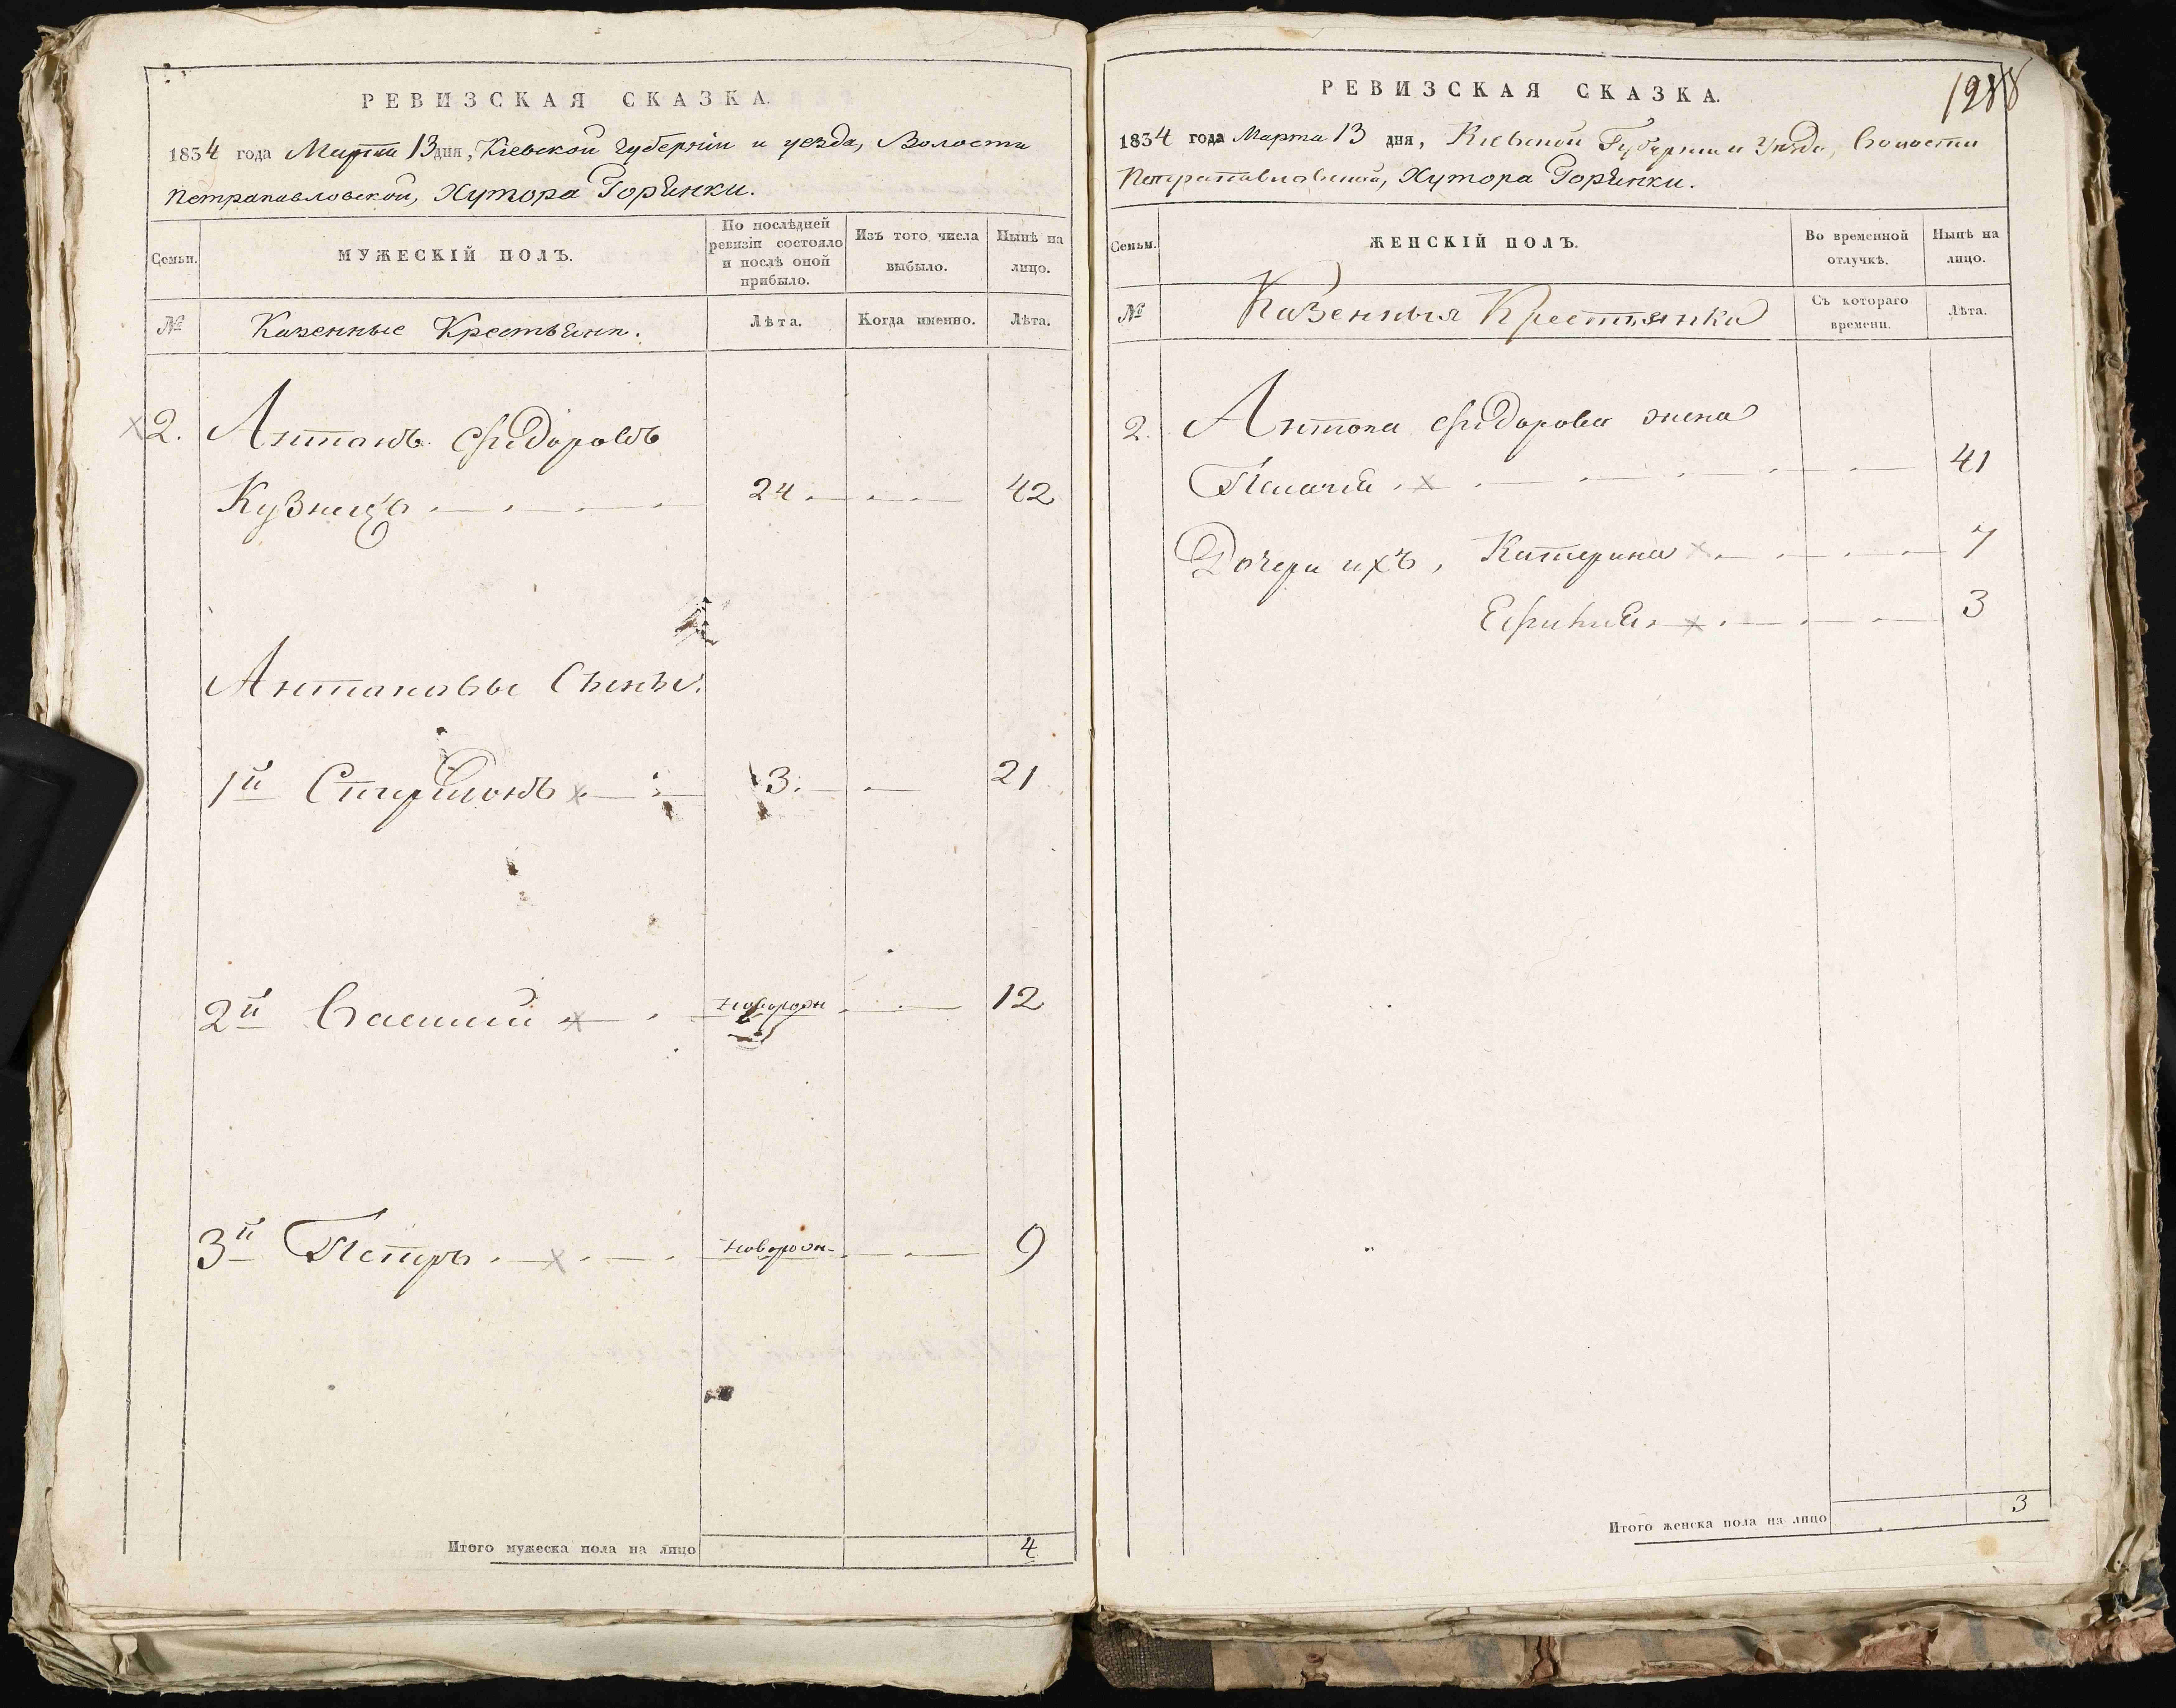 РЕВИЗСКАЯ СКАЗКА.
1834 года Марта 13 дня, Киевской Губерніи и уезда, Волости
Петрапавловской, Хутора Горянки.
Семьи.
МУЖЕСКІЙ ПОЛЪ.
По послѣдней ревизіи состояло и послѣ оной прибыло.
Изъ того числа выбыло.
Нынѣ на лицо.
№
Казенные Крестьяни.
Лѣта.
Когда именно.
Лѣта.
2. Антонъ Фидоровъ
Кузнецъ 24 42
Антоновы Сыны.
1й Спиридонъ 3. 21
2й Василий новорожн 12
3й Петръ новорожн 9
Итого мужеска пола на лицо 4
1288
РЕВИЗСКАЯ СКАЗКА.
1834 года Марта 13 дня, Киевской Губернии и Уезда, Волости
Петрапавловской, Хутора Горянки.
Семьи.
ЖЕНСКІЙ ПОЛЪ.
Во временной отлучкѣ.
Нынѣ на лицо.
№
Казенныя Крестьянки
Съ котораго времени.
Лѣта.
2. Антона Фидорова жена
Пелагия 41
Дочери ихъ, Катерина 7
Ефимия 3
Итого женска пола на лицо 3